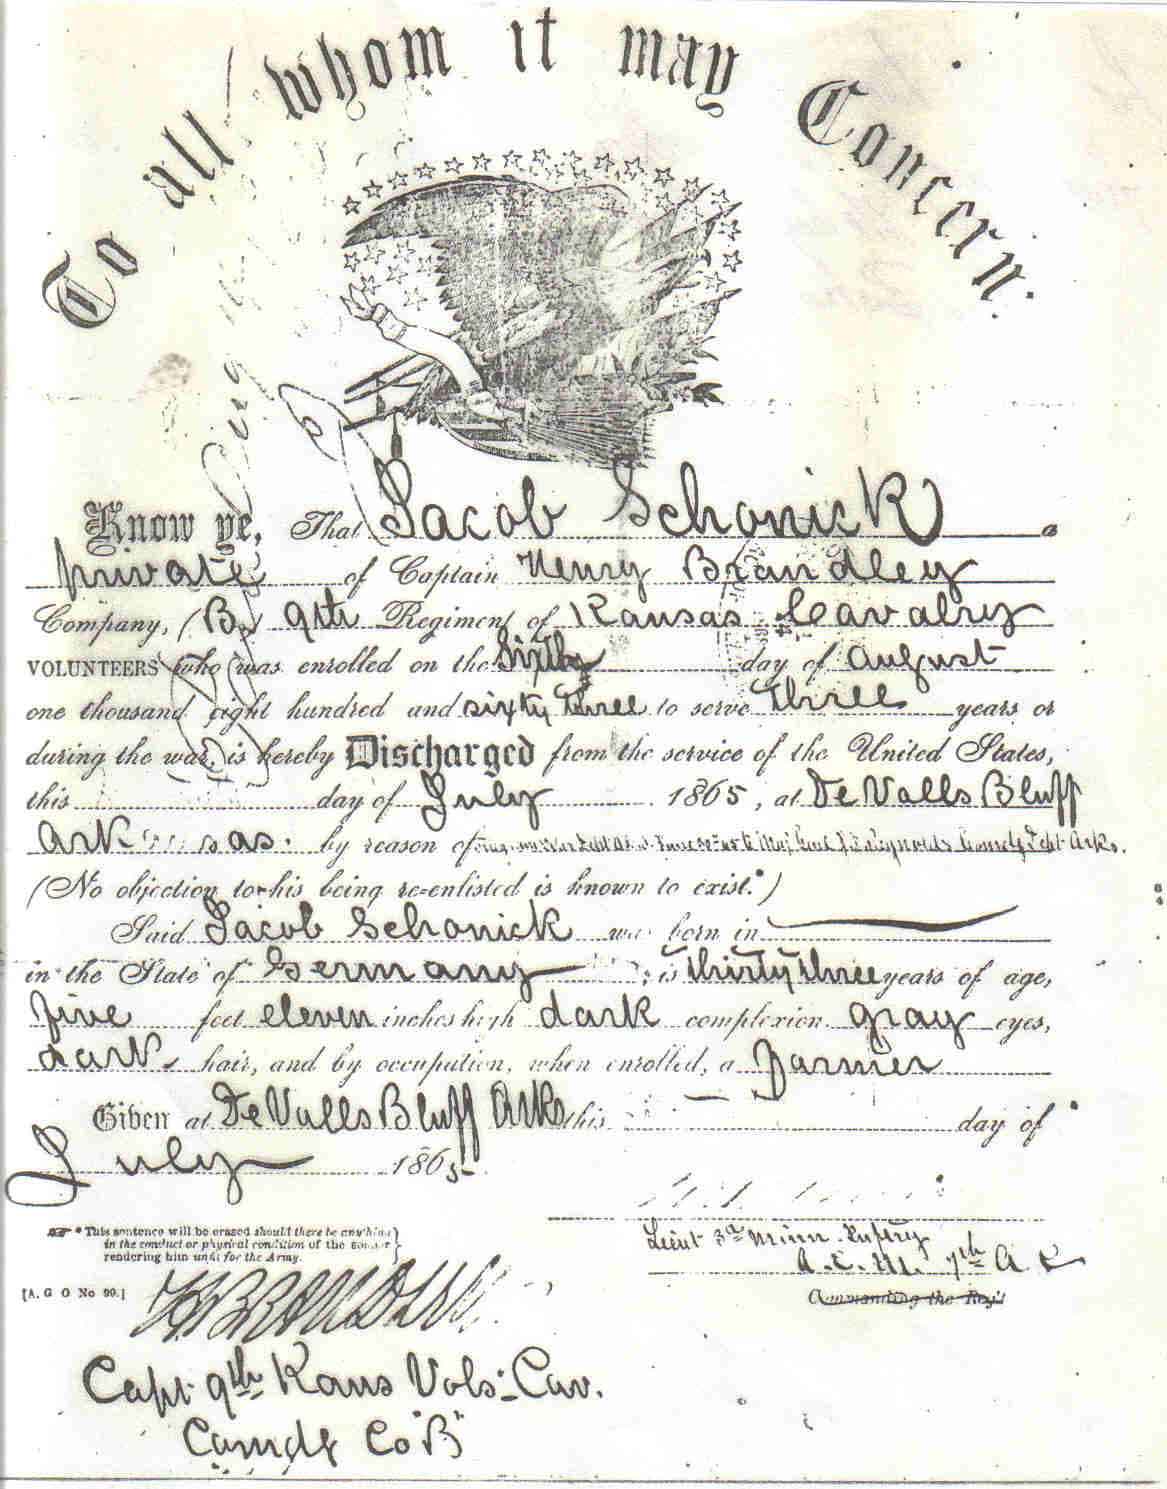 To all whom it may Concern.
Know ye, That Jacob Schonick a
private of Captain Henry Brandley
Company, (B,) 9th Regiment of Kansas Cavalry
VOLUNTEERS who was enrolled on the day of August
one thousand eight hundred and sixty three to serve three years or
during the war, is hereby Discharged from the service of the United States,
this day of July 1865, at De Valls Bluff
Arkansas. by reason of Maj Genl Reynolds Comdg Dept Arks.
(No objection to his being re-enlisted is known to exist.*)
Said Jacob Schonick was born in
in the State of Germany, is thirty three years of age,
five feet eleven inches high dark complexion, gray eyes,
dark hair, and by occupation, when enrolled, a Farmer
Given at De Valls Bluff Arks this day of
July 1865
*This sentence will be erased should there be anything
in the conduct or physical condition of the soldier
rendering him unfit for the Army.
[A. G O No 99.]
Lieut 3rd Minn.
A. C. M. 7th A. C.
Commanding the Reg't
Capt 9th Kans Vols- Cav.
Comdg Co "B"